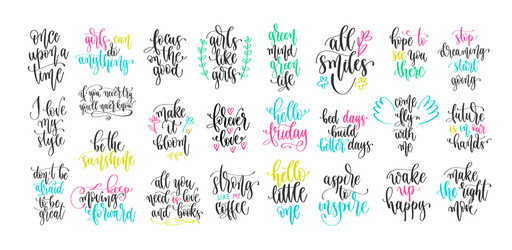 once
upon a
time
girls can
do
anything
focus
on the
good
girls
like
girls
green
mind
green
life
all
smiles
hope to
see you
there
stop
dreaming
start
going
I love
my
style
if you never try
you'll never know
be the
sunshine
make
it
bloom
forever
love
hello
friday
bad days
build
better days
come
fly with
me
future
is in our
hands
don't be
afraid
to be
great
keep
moving
forward
all you
need is love
and books
strong
LIKE MY
coffee
hello
little
one
aspire
to
inspire
wake
up
happy
make
the right
move